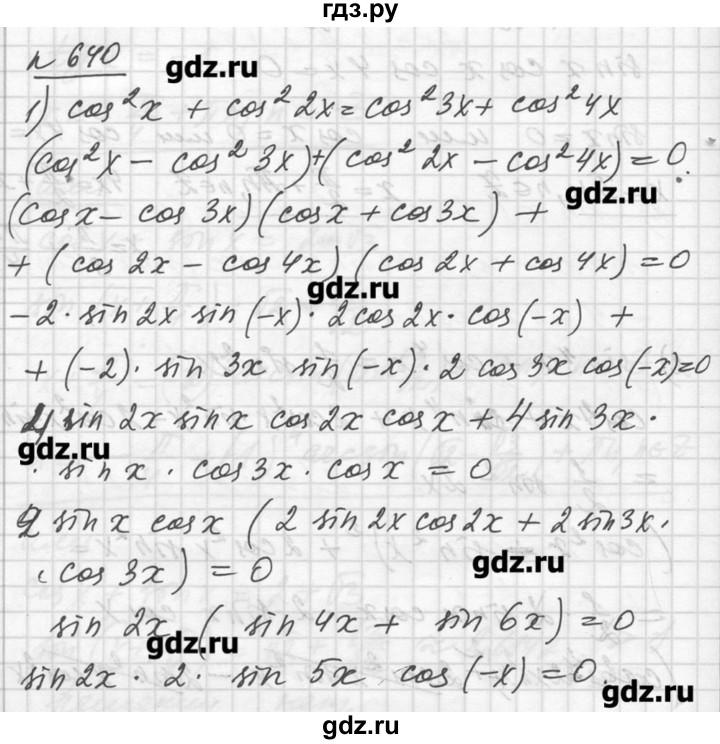 гдз.ру
n 640
gdz.ru
1) cos²x + cos²2x = cos²3x + cos²4x
(cos²x - cos²3x)+(cos²2x - cos²4x) = 0.
gdz.ru
(cosx - cos 3x)(cosx + cos3x) +
+ (cos 2x - cos 4x)(cos2x + cos 4x) = 0
gdz.ru
-2·sin2x sin(-x)·2cos2x·cos(-x) +
+ (-2)·sin 3x sin(-x)·2 cos3x cos(-x)=0
4 sin 2x sinx cos2x cosx + 4 sin 3x ·
gdz.ru
· sinx · cos3x · cosx = 0
2 sinx cosx (2 sin 2x cos2x + 2 sin3x ·
· cos 3x) = 0
gdz.ru
sin 2x (sin 4x + sin 6x) = 0
gdz.ru
sin2x · 2 · sin 5x cos(-x) = 0.
gdz.ru
gdz.ru